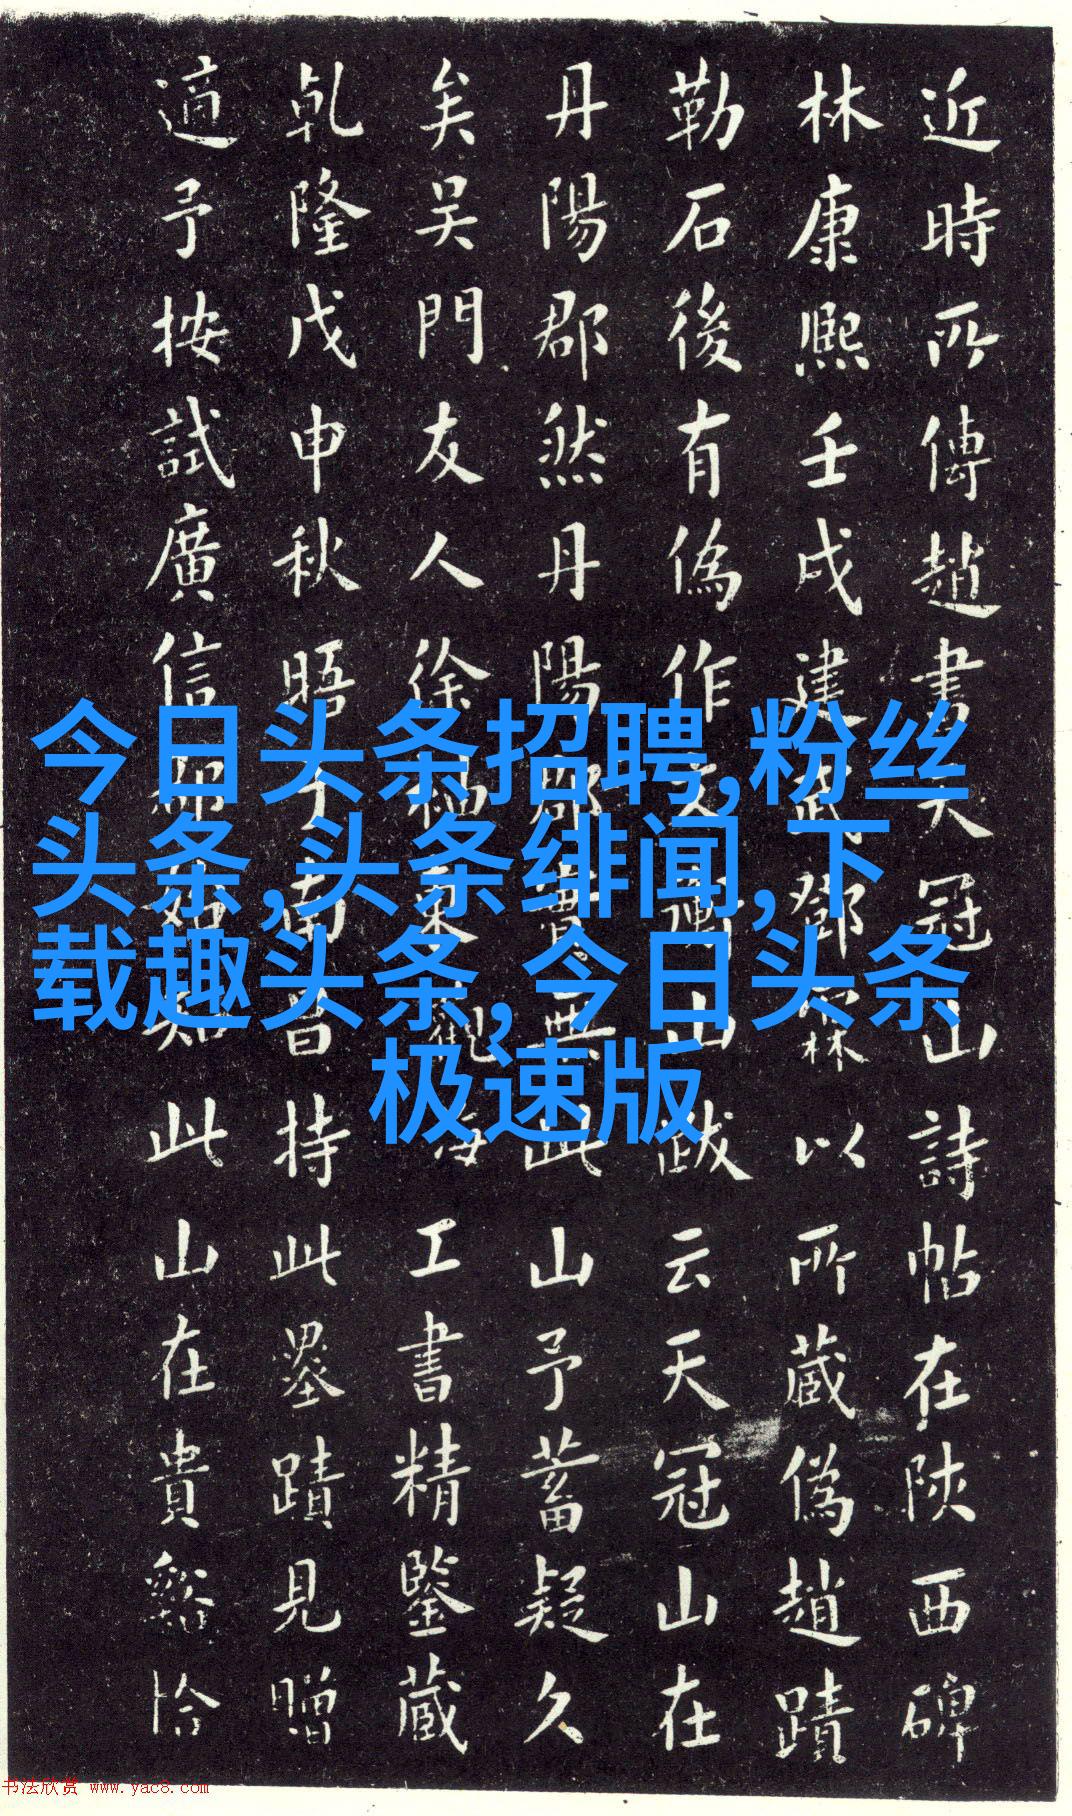 近時所傳趙書天冠山詩帖在陝西碑
林康熙壬戌建武鄧霖以所藏偽趙蹟
勒石後有偽作文衡山跋云天冠山在
丹陽郡然丹陽郡實無此山予蓄疑久
矣吳門友人徐東觀海工書精鑒藏
乾隆戊申秋晤于南昌持此墨蹟見贈
適予按試廣信知此山在貴谿恰
今日头条招聘,粉丝
头条,头条绯闻,下
载趣头条,今日头条
极速版
书法欣赏 www.yac8.com